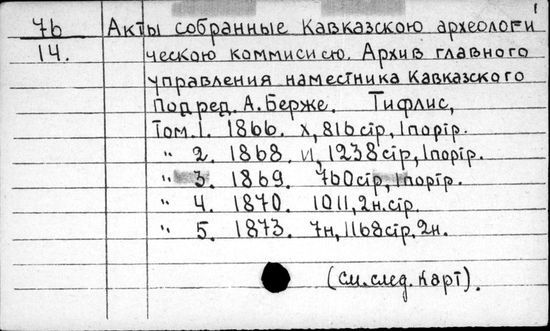 7b Акты собранные Кавказскою археологи
14. ческою коммисисю. Архив главного
управления наместника Кавказского
Под ред. А. Берже. Тифлис,
Том. 1. 1866. X, 816 стр, 1 портр.
" 2. 1868. И, 1238 стр, 1 портр.
" 3. 1869. 760 стр, 1 портр.
" 4. 1870. 1011, 2н. стр.
" 5. 1873. 7н, 1168 стр, 2н.
(см. след. карт).